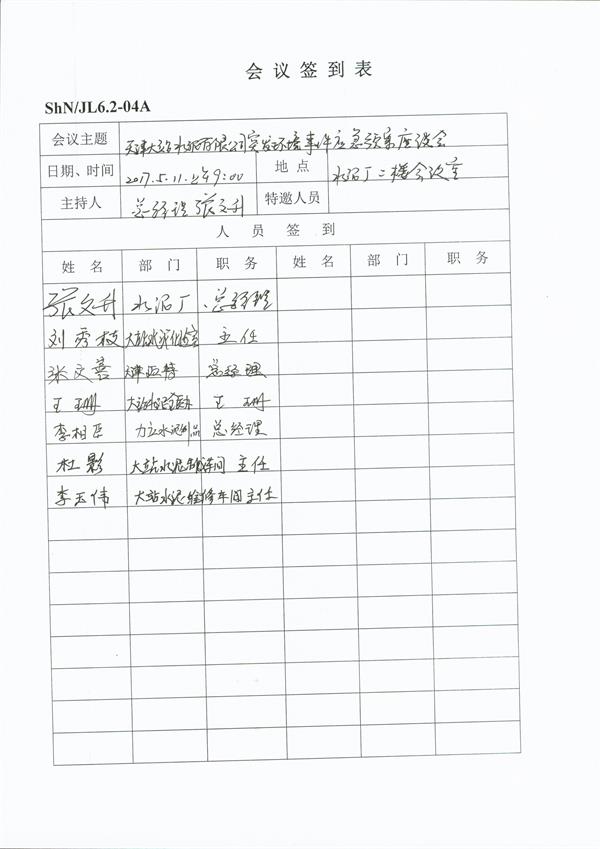 会议签到表
ShN/JL6.2-04A
会议主题 天津大站水泥有限公司突发环境事件应急预案座谈会
日期、时间 2017.5.11.上午9:00 地点 水泥厂二楼会议室
主持人 总经理 张文升 特邀人员
人员签到
姓名 部门 职务 姓名 部门 职务
张文升 水泥厂 总经理
刘秀枝 大站水泥化验室 主任
张文喜 总经理
王珊 大站水泥 王珊
李相臣 力立水泥制品 总经理
杜影 大站水泥制成车间 主任
李玉伟 大站水泥维修车间 主任